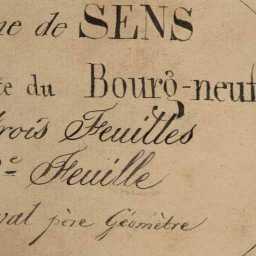 ne de SENS
te du Bourg-neuf
trois Feuilles
e Feuille
val père Géomètre